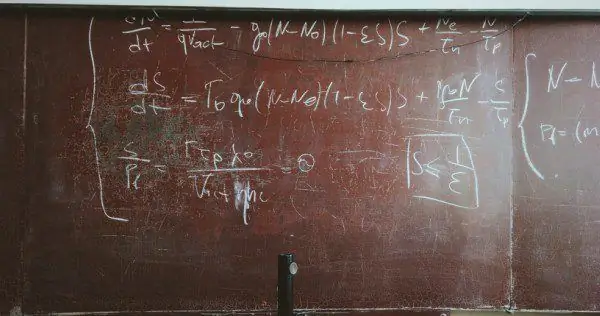 dN/dt = I/qVact - g₀(N-N₀)(1-εS)S + Ne/τn - N/τp
dS/dt = Γ₀g₀(N-N₀)(1-εS)S + Γβ₀N/τn - S/τp
S/Pf = Γτpλ₀/Vactηhc = ②
S ≤ 1/ε
N - N
Pf = (m